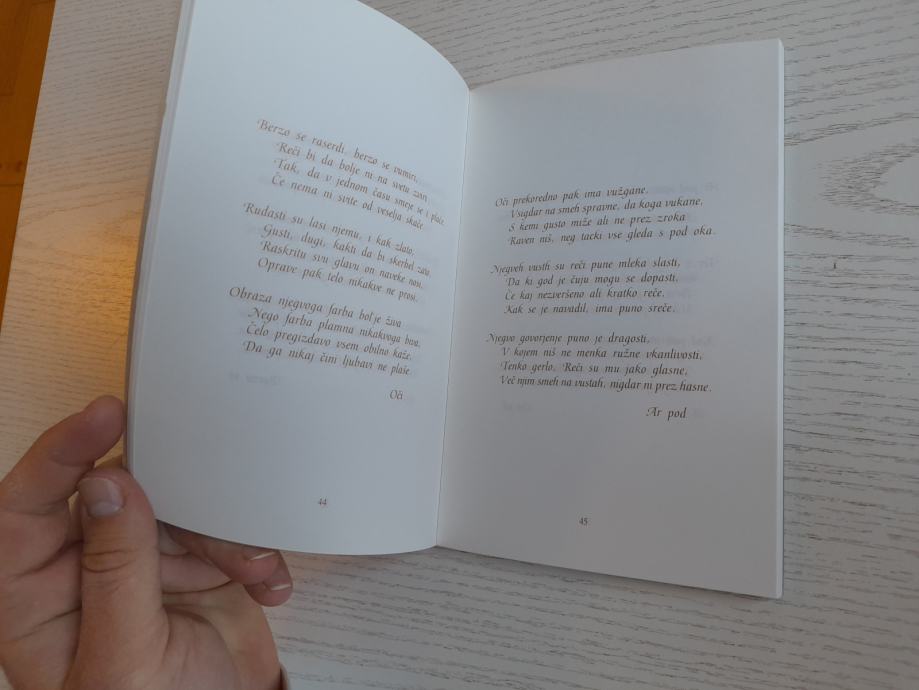 Berzo se raserdi, berzo se vumiri,
Reči bi da bolje ni na svetu zviri
Tak, da v jednom času smeje se i plače.
Če nema ni svite od veselja skače.
Rudasti su lasi njemu, i kak zlato,
Gusti, dugi, kakti da bi skerbel zato,
Raskritu svu glavu on naveke nosi,
Oprave pak telo nikakve ne prosi.
Obraza njegvoga farba bolje živa
Nego farba plamna nikakvoga biva,
Čelo pregizdavo vsem obilno kaže,
Da ga nikaj čini ljubavi ne plaše.
Oči
44
Oči prekoredno pak ima vužgane.
Vsigdar na smeh spravne, da koga vukane,
S kemi gusto miže ali ne prez zroka
Raven niš, neg tacki vse gleda s pod oka.
Njegveh vusth su reči pune mleka slasti,
Da ki god je čuju mogu se dopasti.
Če kaj nezveršeno ali kratko reče,
Kak se je navadil, ima puno sreče.
Njegvo govorjenje puno je dragosti,
V kojem niš ne menka ružne vkanlivosti,
Tenko gerlo, Reči su mu jako glasne,
Več njim smeh na vustah, nigdar ni prez hasne.
Ar pod
45